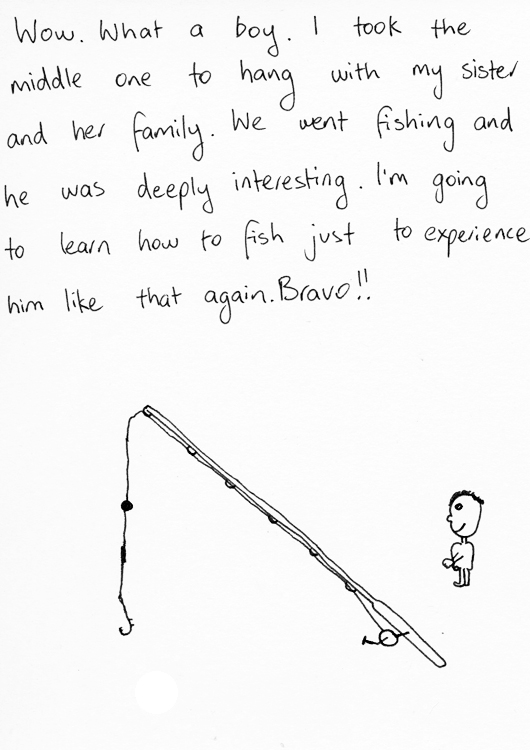 Wow. What a boy. I took the
middle one to hang with my sister
and her family. We went fishing and
he was deeply interesting. I'm going
to learn how to fish just to experience
him like that again. Bravo!!